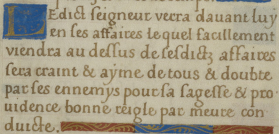 Ledict seigneur verra dauant luy
en ses affaires lequel facillement
viendra au dessus de sesdictz affaires
sera craint & aÿme de tous & doubte
par ses ennemys pour sa sagesse & pro
uidence bonne reigle par meure con
duicte.